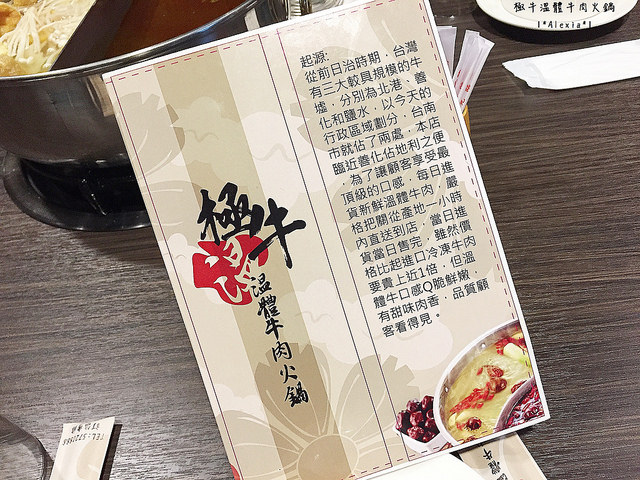 極牛温體牛肉火鍋
|*Alexia*|
起源:
從前日治時期，台灣
有三大較具規模的牛
墟，分別為北港、善
化和鹽水，以今天的
行政區域劃分，台南
市就佔了兩處，本店
臨近善化佔地利之便
，為了讓顧客享受最
頂級的口感，每日進
貨新鮮溫體牛肉，嚴
格把關從產地一小時
內直送到店，當日進
貨當日售完，雖然價
格比起進口冷凍牛肉
要貴上近1倍，但溫
體牛口感Q脆鮮嫩，
有甜味肉香，品質顧
客看得見。
極牛
温體牛肉火鍋